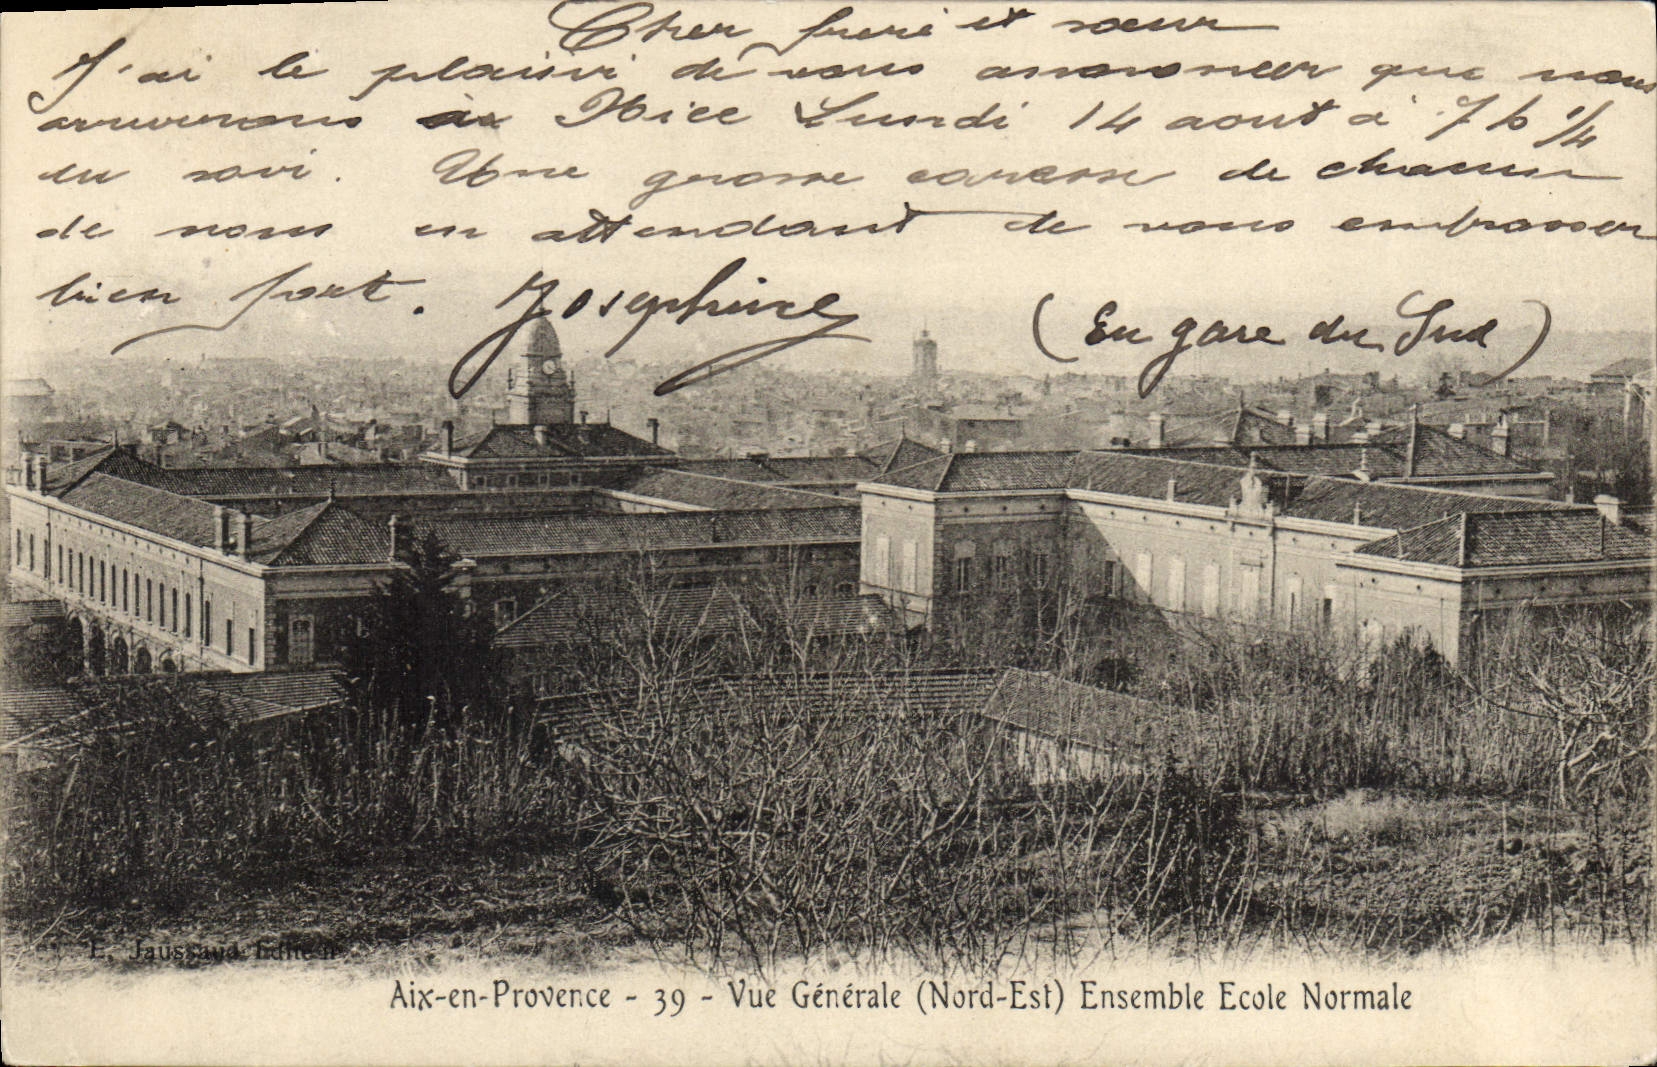 Cher frere et sœur
J'ai le plaisir de vous annoncer que nous
arriverons à Nice Lundi 14 aout à 7 h 1/4
du soir. Une grosse caresse de chacun
de nous en attendant de vous embrasser
bien fort. Josephine
(En gare du Sud)
E. Jaussaud Editeur
Aix-en-Provence - 39 - Vue Générale (Nord-Est) Ensemble Ecole Normale